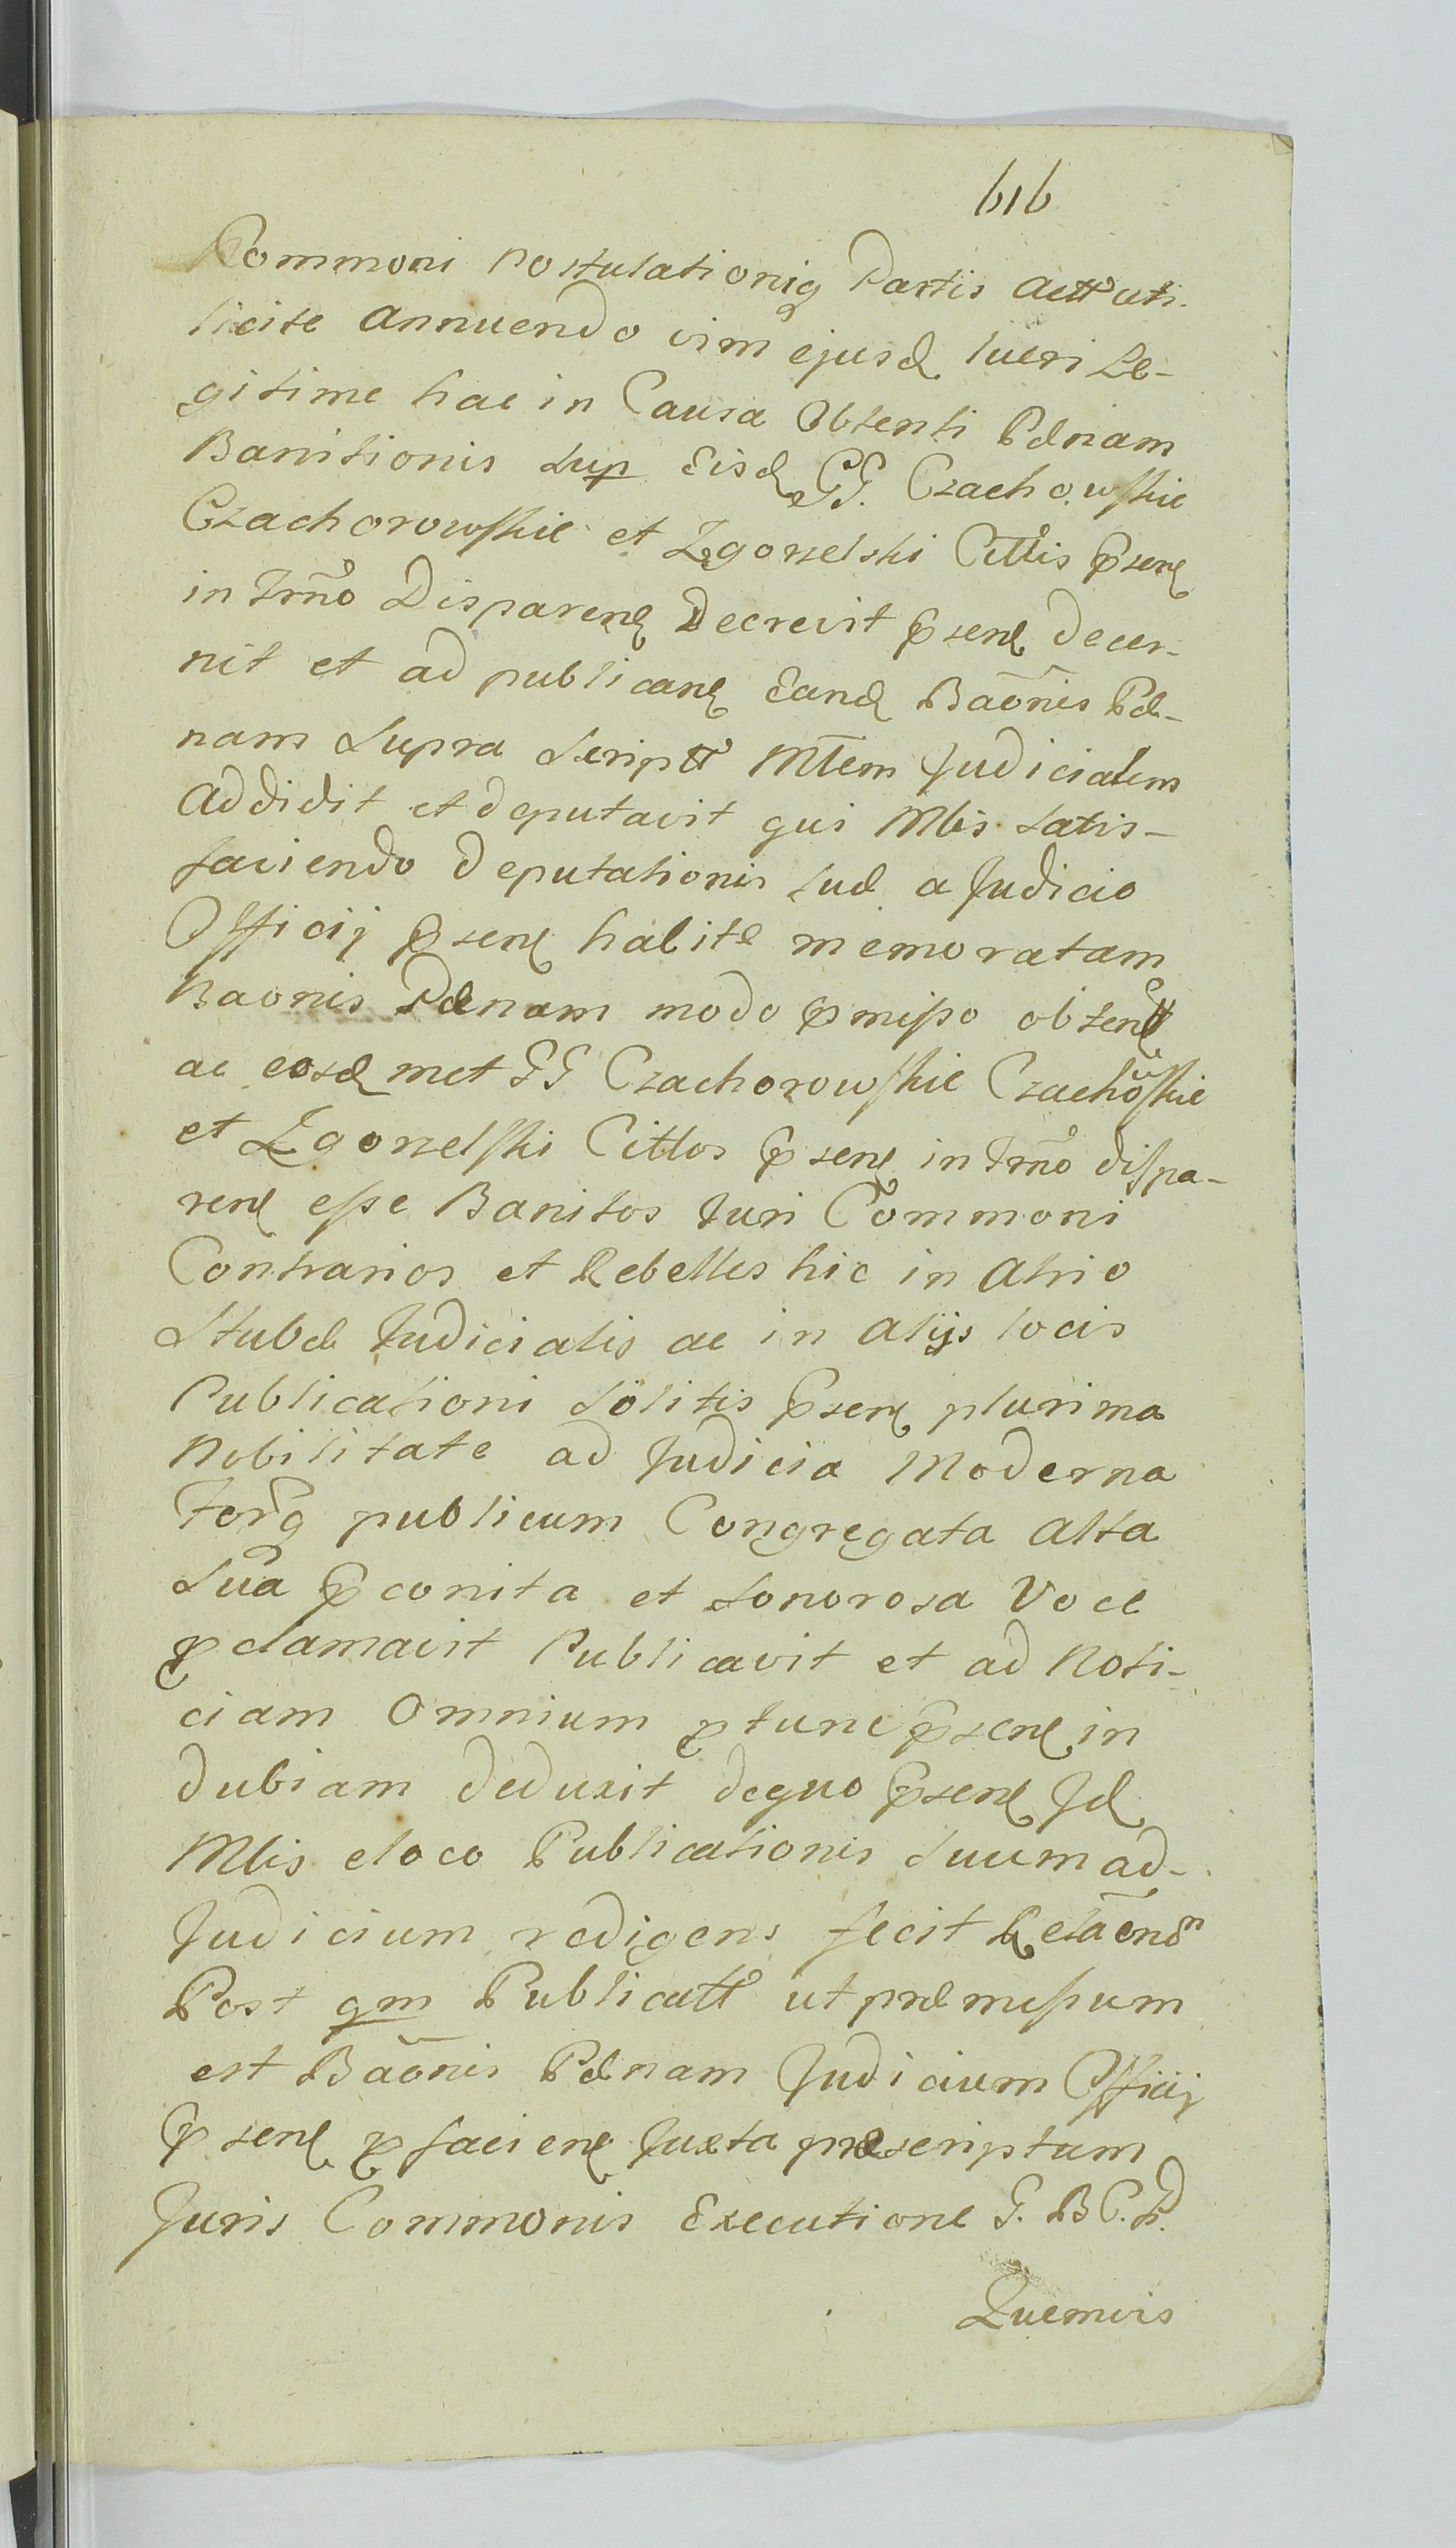 616
Commoni postulationiq Partis actt uti
licite annuendo vim ejusd lucri Le-
gitime hac in Causa Obtenti Pænam
Banitionis sup Eisd GG. Czachowskie
Czachorowskie et Zgorzelski Cittis psen
in Trno Disparen Decrevit psen decer-
nit et ad publicand Eand Baonis Pæ-
nam supra scriptt Mtem Judicialem
addidit et deputavit qui Mlis satis-
faciendo deputationis suæ a Judicio
Officij psen habitæ memoratam
Baonis Pænam modo pmisso obtent
ac eosd met GG Czachorowskie Czachowskie
et Zgorzelski Cittos psen in Trno dispa-
ren esse Banitos Juri Commoni
Contrarios et Rebelles hic in atrio
Stubæ Judicialis ac in alijs locis
Publicationi solitis psen plurima
Nobilitate ad Judicia Moderna
Forq publicum Congregata alta
sua pconita et sonorosa Voce
pclamavit Publicavit et ad Noti-
ciam Omnium ptunc psen in
dubiam deduxit dequo psen Id
Mlis eloco Publicationis suum ad-
Judicium redigens fecit Relaonem
Post qm Publicatt ut præmissum
est Baonis Pænam Judicium Officij
psen pfacien Juxta præscriptum
Juris Commonis Executione G. B C. P.
Quemvis